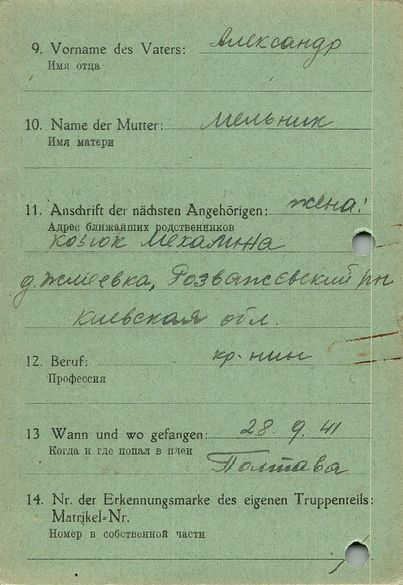 9. Vorname des Vaters: Александр
Имя отца
10. Name der Mutter: Мельник
Имя матери
11. Anschrift der nächsten Angehörigen: жена:
Адрес ближайших родственников
Козюк Мехалина
д. Жмеевка, Розважевский рн
Киевская обл.
12. Beruf: кр-нин
Профессия
13 Wann und wo gefangen: 28. 9. 41
Когда и где попал в плен
Полтава
14. Nr. der Erkennungsmarke des eigenen Truppenteils:
Matrikel=Nr.
Номер в собственной части